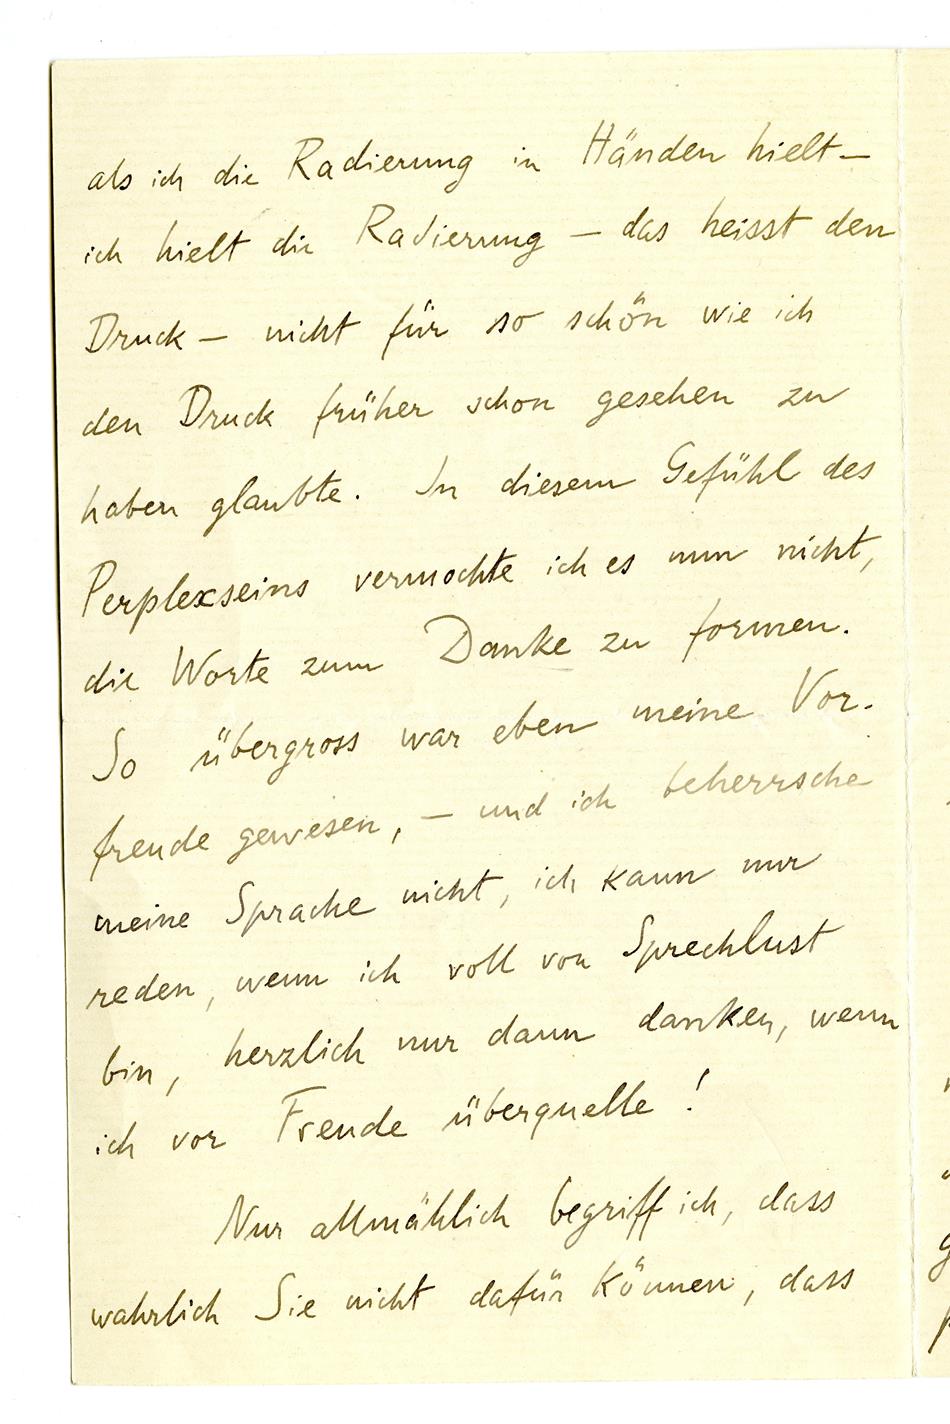 als ich die Radierung in Händen hielt —
ich hielt die Radierung — das heisst den
Druck — nicht für so schön wie ich
den Druck früher schon gesehen zu
haben glaubte. In diesem Gefühl des
Perplexseins vermochte ich es nun nicht,
die Worte zum Danke zu formen.
So übergross war eben meine Vor-
freude gewesen, — und ich beherrsche
meine Sprache nicht, ich kann nur
reden, wenn ich voll von Sprechlust
bin, herzlich nur dann danken, wenn
ich vor Freude überquelle!
Nur allmählich begriff ich, dass
wahrlich Sie nicht dafür können, dass